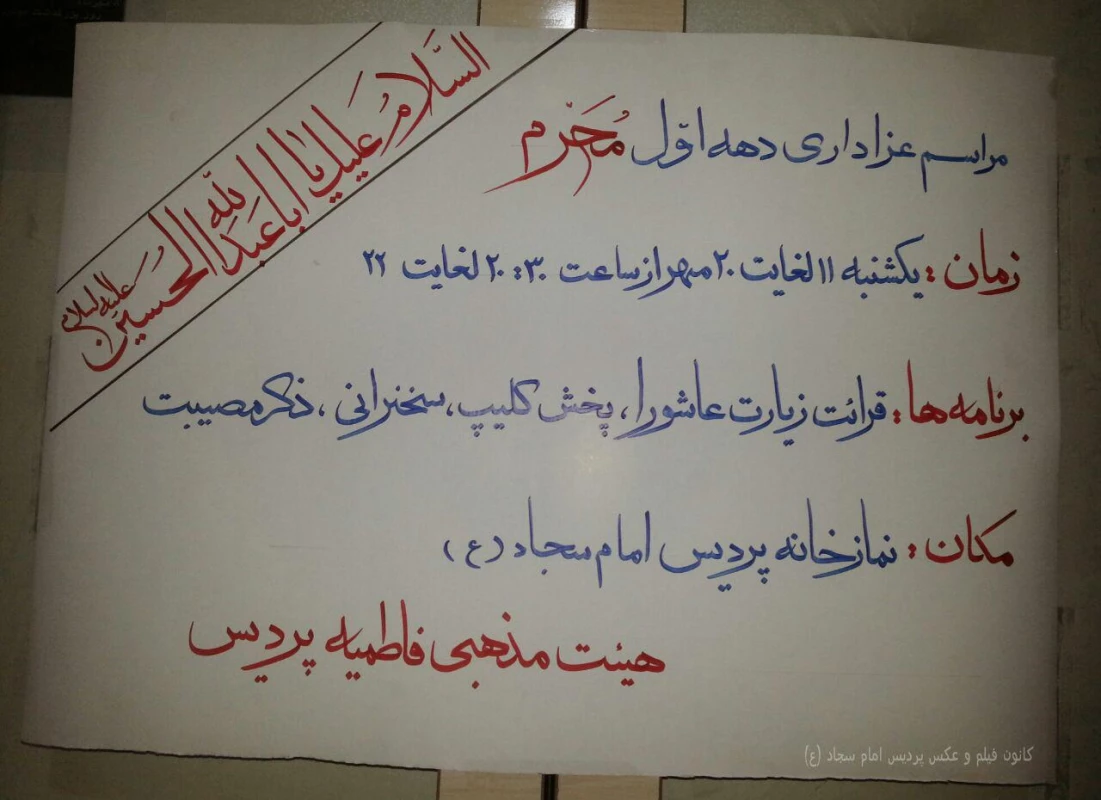 السَّلامُ عَلیكَ یا اَبا عَبدِ اللّه الحُسَین علیه السلام
مراسم عزاداری دهه اوّل مُحَرّم
زمان : یکشنبه ۱۱ لغایت ۲۰ مهر از ساعت ۲۰:۳۰ لغایت ۲۲
برنامه ها : قرائت زیارت عاشورا، پخش کلیپ، سخنرانی ، ذکر مصیبت
مکان : نمازخانه پردیس امام سجاد (ع)
هیئت مذهبی فاطمیه پردیس
کانون فیلم و عکس پردیس امام سجاد (ع)